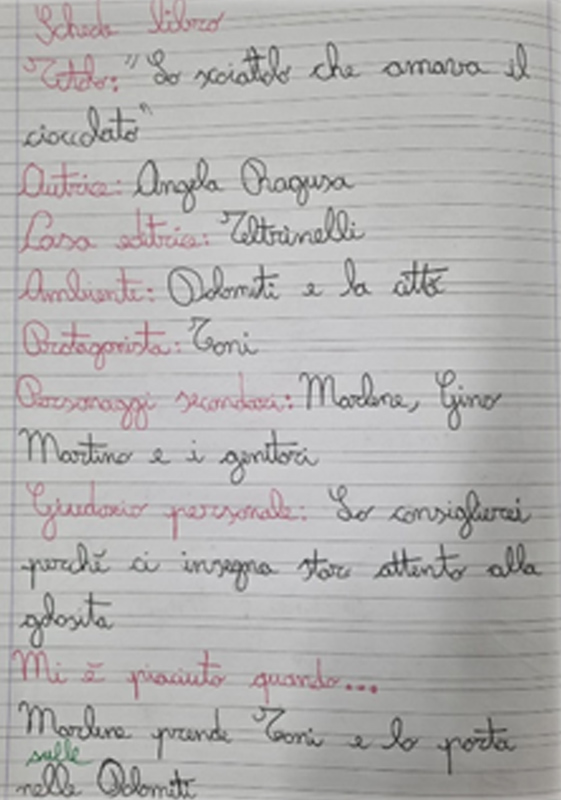 Scheda libro
Titolo: "Lo scoiattolo che amava il
cioccolato"
Autrice: Angela Ragusa
Casa editrice: Feltrinelli
Ambiente: Dolomiti e la città
Protagonista: Toni
Personaggi secondari: Marlene, Gino
Martino e i genitori
Giudizio personale: Lo consiglierei
perchè ci insegna star attento alla
golosita
Mi è piaciuto quando...
Marlene prende Toni e lo porta
sulle
nelle Dolomiti